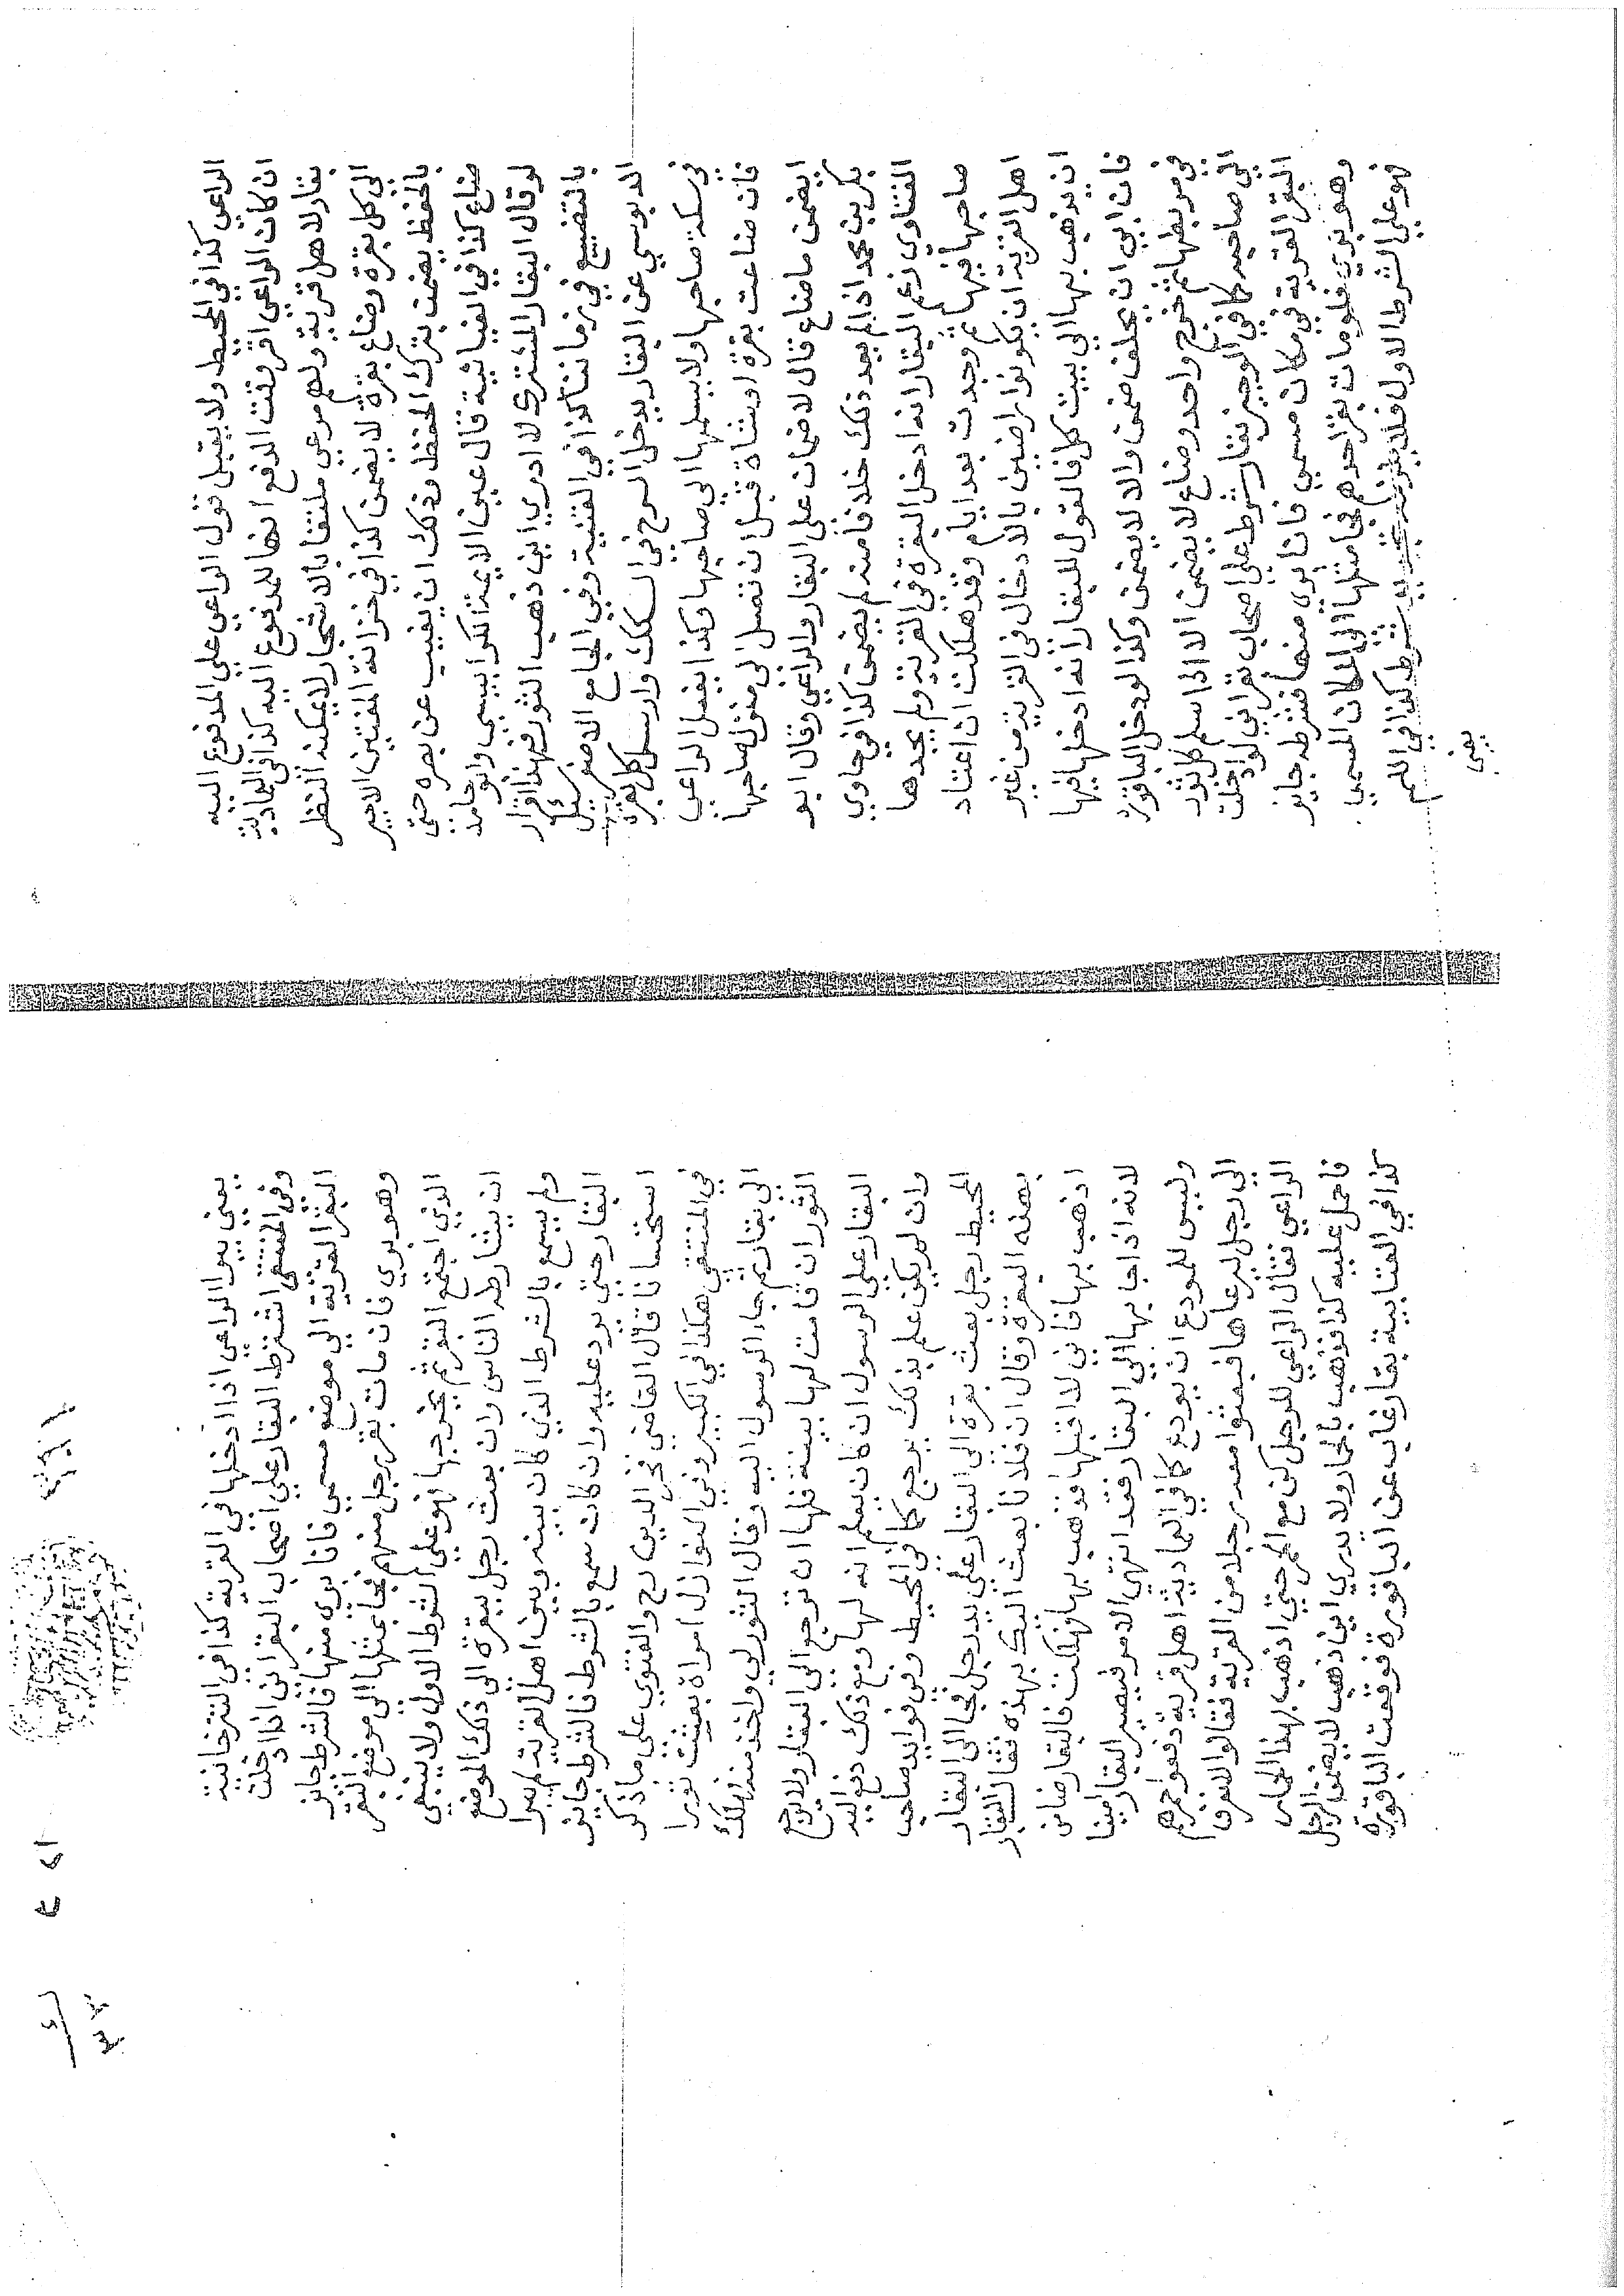 الراعي كذا في المحيط ولا يقبل قول الراعي علي المدفوع اليه
ان كان الراعي اقر وقت الدفع انها للمدفوع اليه كذا في العمادية
بقار لاهل قرية ولهم مرعي ملتف بالاشجار لا يمكنه النظر
الي كل بقرة وضاع بقرة لا يضمن كذا في خزانة المفتين الاجير
بالحفظ يضمن بترك الحفظ وذلك ان يغيب عن بصره حتي
ضاع كذا في الغياثية قال عين الايمة الكرابيسي وابو حامد
لو قال البقار المشترك لا ادري اين ذهب الثور فهذا اقرار
بالتضييع في زماننا كذا في القنية وفي الجامع الاصغر سئل
الدبوسي عن البقار يدخل السرح في السكك وارسل كل بقرة
في سكة صاحبها ولا يسلمها الي صاحبها وكذا يفعل الراعي
فان ضاعت بقرة او شاة قبل ان تصل الي منزل صاحبها
ايضمن ما ضاع قال لا ضمان علي البقار والراعي وقال ابو
بكر بن محمد اذا لم يعد ذلك خلافا منه لم يضمن كذا في حاوي
الفتاوي زعم البقار انه ادخل البقرة في القرية ولم يجدها
صاحبها فيها ثم وجدت بعد ايام وقد هلكت ان اعتاد
اهل القرية ان يكونوا راضين بالادخال في القرية من غير
ان يذهب بها الي بيت كل فالقول للبقار انه ادخلها فيها
فان ابي ان يحلف ضمن والا لا يضمن وكذا لو دخل الباقورة
في مربطها ثم خرج واحد وضاع لا يضمن الا اذا سلم كل ثور
الي صاحبه كما في الوجيز بقار شرط علي اصحاب بقر اني لو ادخلت
البقر القرية في مكان مسمي فانا بري منها فشرطه جايز
وهو بري فلو مات بقر احدهم فجا مثلها الي المكان المسمي
فهو علي الشرط الاول كذا في اللم
يعني
يعني بيرا الراعي اذا ادخلها في القرية كذا في التترخانية
وفي المنتقي اشترط البقار علي اصحاب البقر اني اذا ادخلت
البقر القرية الي موضع مسمي فانا بري منها فالشرط جايز
وهو بري فان مات بقر رجل منهم فجا بمثلها الي موضع البقر
الذي اجتمع البقر ثم يخرجها فهو علي الشرط الاول ولا ينبغي
ان يشارطه الناس وان بعث رجل ببقرة الي ذلك الموضع
ولم يسمع بالشرط الذي كان بينه وبين اهل القرية لم يبرا
البقار حتي يرد عليه وان كان سمع بالشرط فالشرط جايز
استحسانا قال القاضي فخر الدين رح والفتوي علي ما ذكر
في المنتقي هكذا في الكبير وفي النوازل امراة بعثت ثورا
الي بقار ثم جا الرسول اليه وقال الثور لي واخذ منه وهلك
الثور ان قامت لها بينة فلها ان ترجع الي البقار ولا يرجع
البقار علي الرسول ان كان يعلم انه لها ومع ذلك دفع اليه
وان لم يكن علم بذلك يرجع كما في المحيط وفي فوايد صاحب
المحيط رجل بعث بقرة الي البقار علي يد رجل فجا الي البقار
بهذه البقرة وقال ان فلانا بعث اليك بهذه فقال البقار
اذهب بها فاني لا اقبلها فذهب بها فهلكت فالبقار ضامن
لانه اذا جا بها الي البقار فقد انتهي الامر فيصير البقار امينا
وليس للمودع ان يودع كما في العمادية اهل قرية دفعوا حمرهم
الي رجل ليرعاها فبعثوا معه رجلا من القرية فقالوا لا نعرف
الراعي فقال الراعي للرجل كن مع الحمر حتي اذهب بهذا الحمار
فاحمل عليه كذا فذهب بالحمار ولا يدري اين ذهب لا يضمن الرجل
كذا في العتابية بقار غاب عن الباقورة فوقعت الباقورة